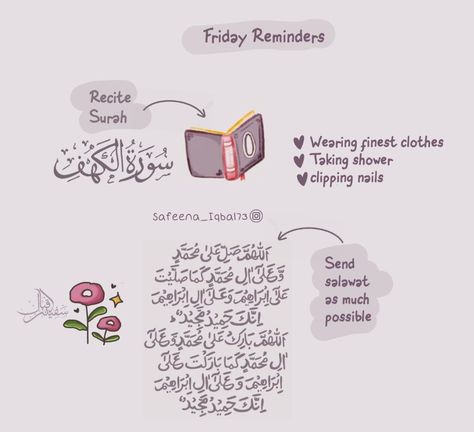 Friday Reminders
Recite
Surah
سُورَةُ الْكَهْفِ
Wearing finest clothes
Taking shower
clipping nails
Safeena_Iqbal73
Send
salawat
as much
possible
اَللّٰهُمَّ صَلِّ عَلٰى مُحَمَّدٍ
وَّعَلٰٓى اٰلِ مُحَمَّدٍ كَمَا صَلَّيْتَ
عَلٰٓى اِبْرَاهِيْمَ وَعَلٰٓى اٰلِ اِبْرَاهِيْمَ
اِنَّكَ حَمِيْدٌ مَّجِيْدٌ
اَللّٰهُمَّ بَارِكْ عَلٰى مُحَمَّدٍ وَّعَلٰٓى
اٰلِ مُحَمَّدٍ كَمَا بَارَكْتَ عَلٰٓى
اِبْرَاهِيْمَ وَعَلٰٓى اٰلِ اِبْرَاهِيْمَ
اِنَّكَ حَمِيْدٌ مَّجِيْدٌ